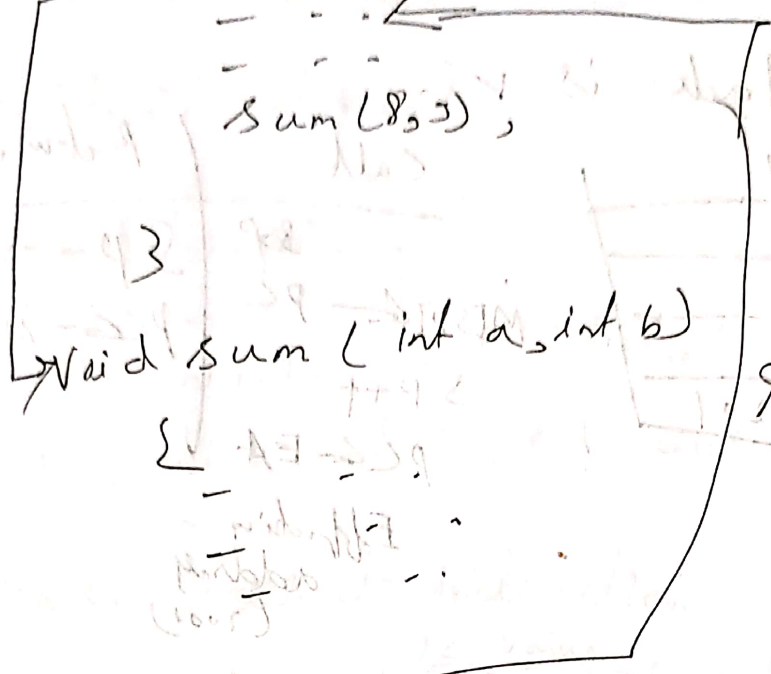 - - -
- - -
sum(8,9);
}
void sum(int a, int b)
{